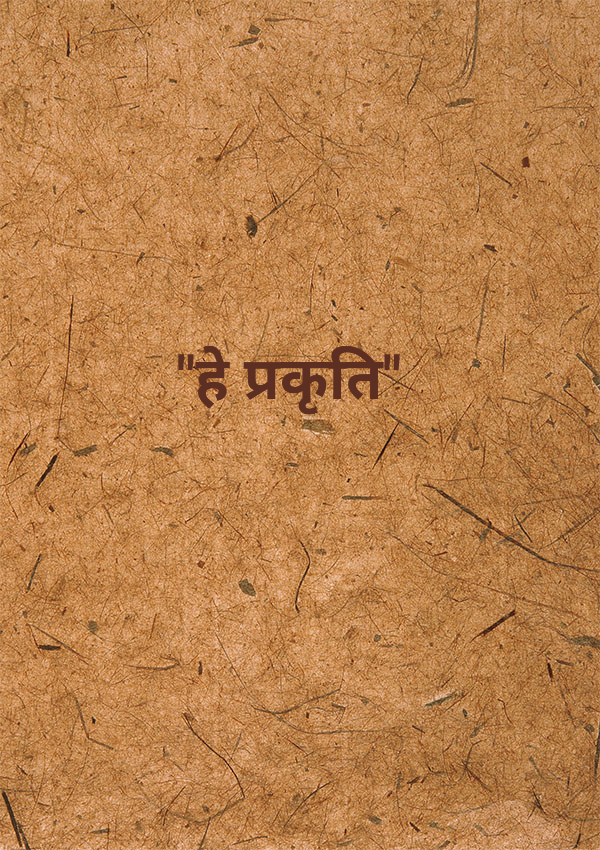 "हे प्रकृति"